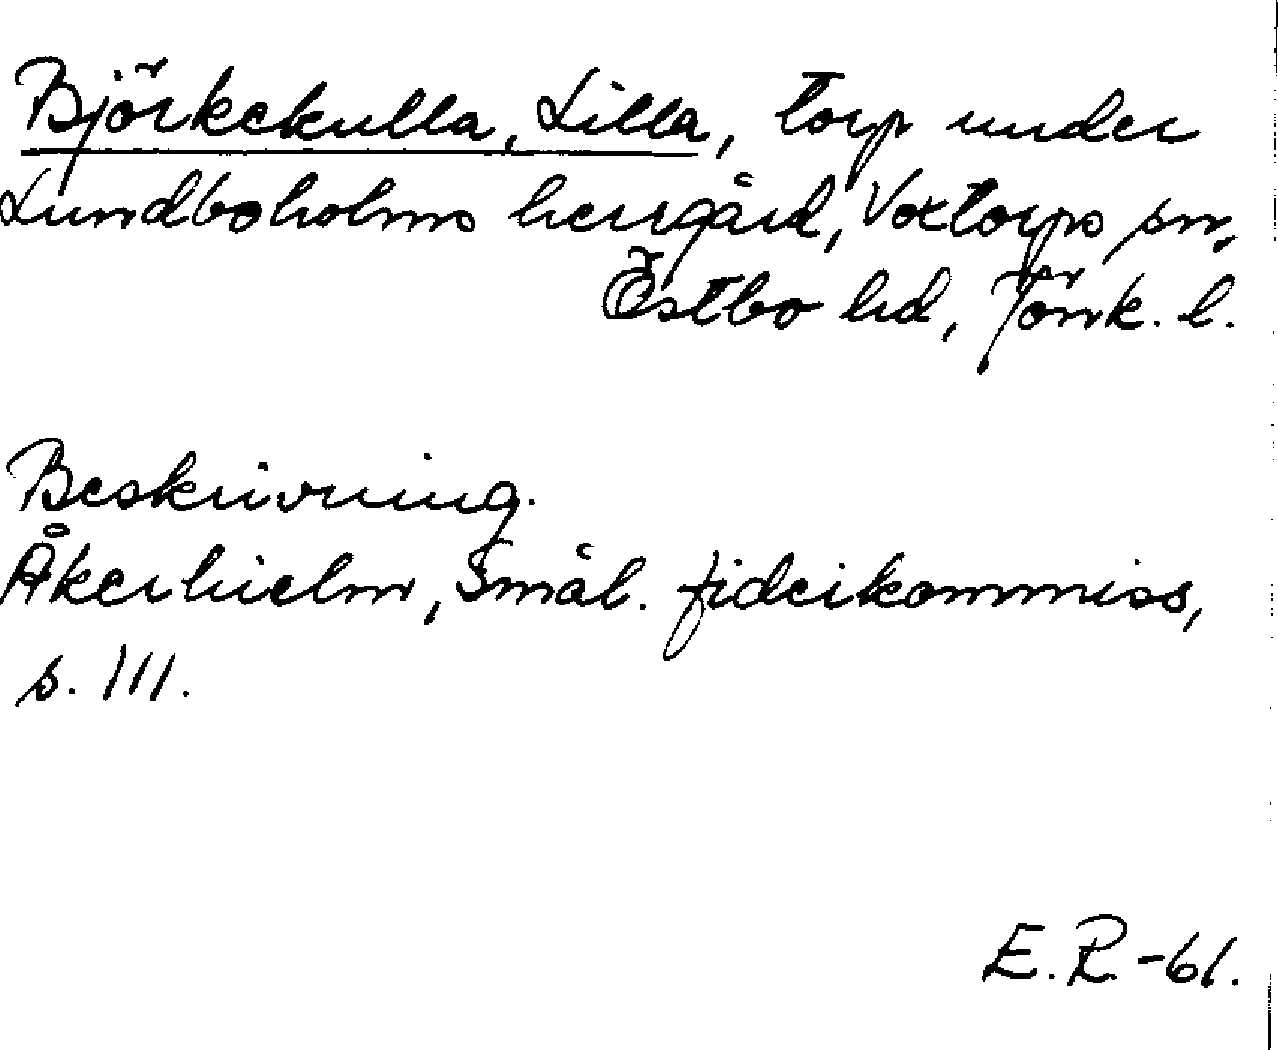 Björkekulla, Lilla, torp under
Lundboholms herrgård, Voxtorps sn,
Östbo hd, Jönk. l.
Beskrivning.
Åkerhielm, Smål. fideikommiss,
s. 111.
E.R.-61.